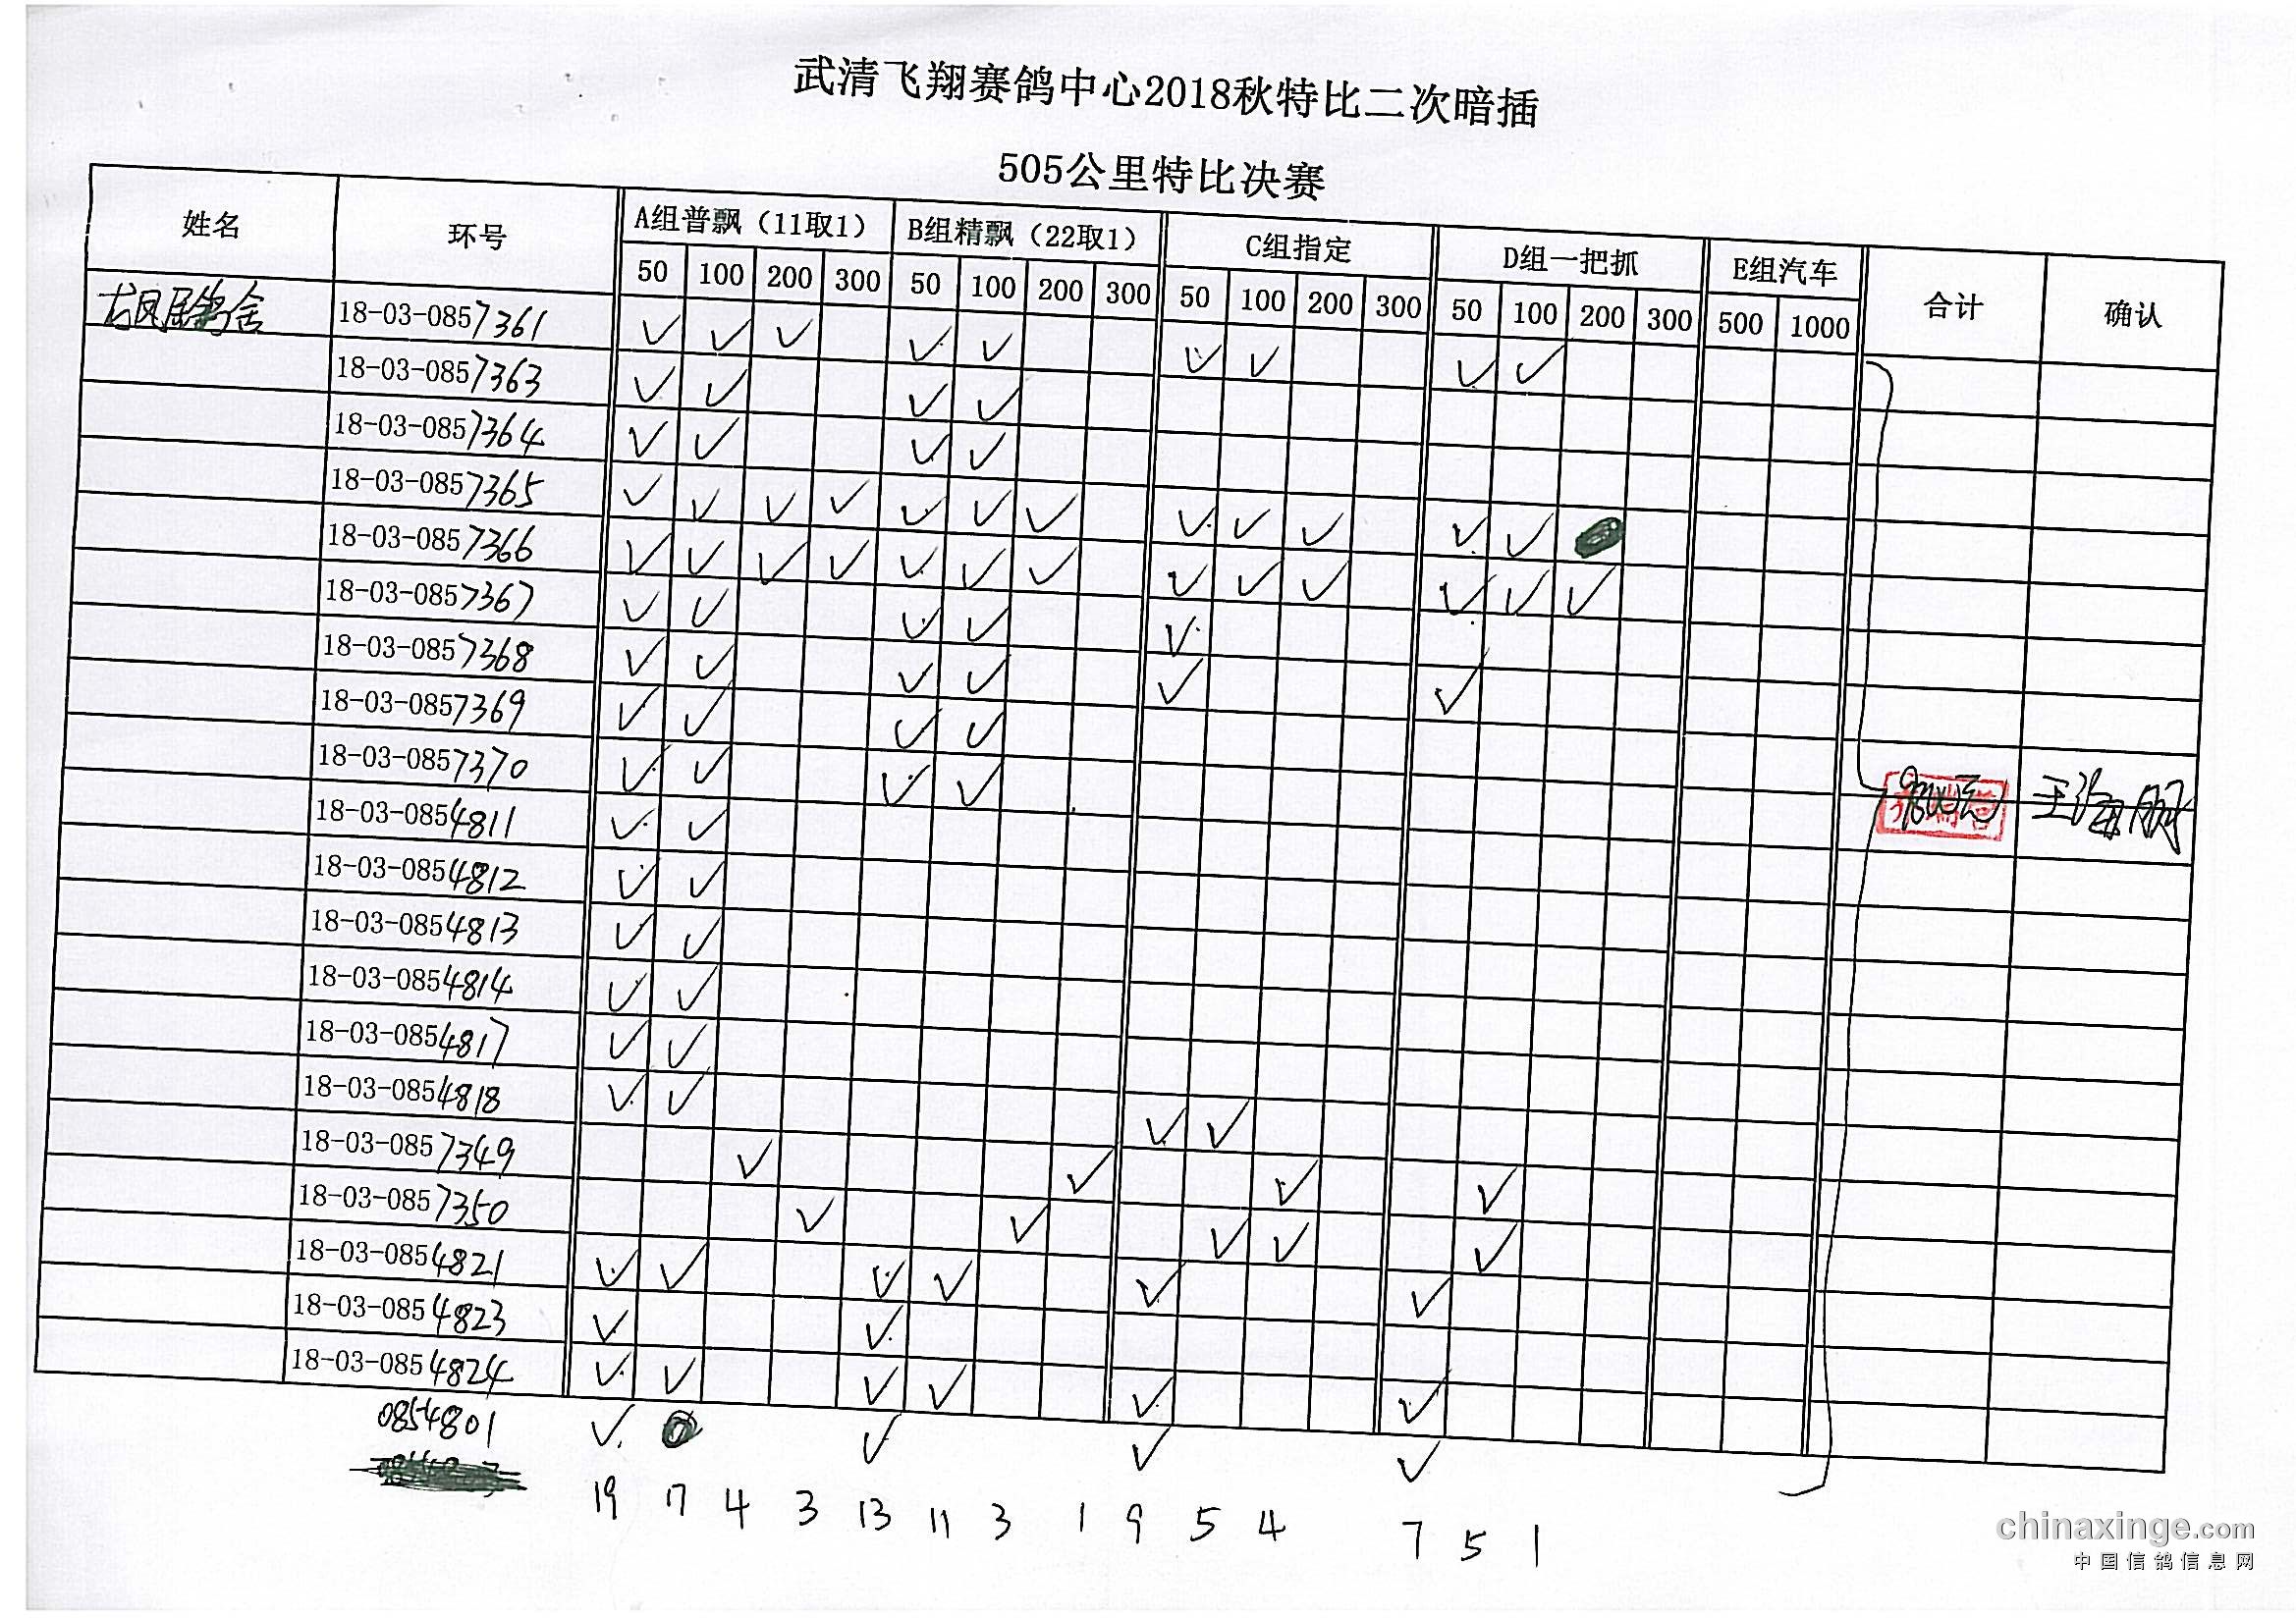 武清飞翔赛鸽中心2018秋特比二次暗插
505公里特比决赛
姓名 环号 A组普飘（11取1） B组精飘（22取1） C组指定 D组一把抓 E组汽车 合计 确认
50 100 200 300 50 100 200 300 50 100 200 300 50 100 200 300 500 1000
凤居鸽舍 18-03-0857361 ✓ ✓ ✓ ✓ ✓ ✓ ✓ ✓ ✓
18-03-0857363 ✓ ✓ ✓ ✓
18-03-0857364 ✓ ✓ ✓ ✓
18-03-0857365 ✓ ✓ ✓ ✓ ✓ ✓ ✓ ✓ ✓ ✓ ✓ ✓
18-03-0857366 ✓ ✓ ✓ ✓ ✓ ✓ ✓ ✓ ✓ ✓ ✓ ✓ ✓
18-03-0857367 ✓ ✓ ✓ ✓ ✓
18-03-0857368 ✓ ✓ ✓ ✓ ✓ ✓
18-03-0857369 ✓ ✓ ✓ ✓
18-03-0857370 ✓ ✓ ✓ ✓
18-03-0854811 ✓ ✓ 王海明
18-03-0854812 ✓ ✓
18-03-0854813 ✓ ✓
18-03-0854814 ✓ ✓
18-03-0854817 ✓ ✓
18-03-0854818 ✓ ✓ ✓ ✓
18-03-0857349 ✓ ✓ ✓ ✓
18-03-0857350 ✓ ✓ ✓ ✓ ✓
18-03-0854821 ✓ ✓ ✓ ✓ ✓ ✓
18-03-0854823 ✓ ✓
18-03-0854824 ✓ ✓ ✓ ✓ ✓ ✓
0854801 ✓ ✓ ✓ ✓
19 17 4 3 13 11 3 1 9 5 4 7 5 1
chinaxinge.com
中国信鸽信息网